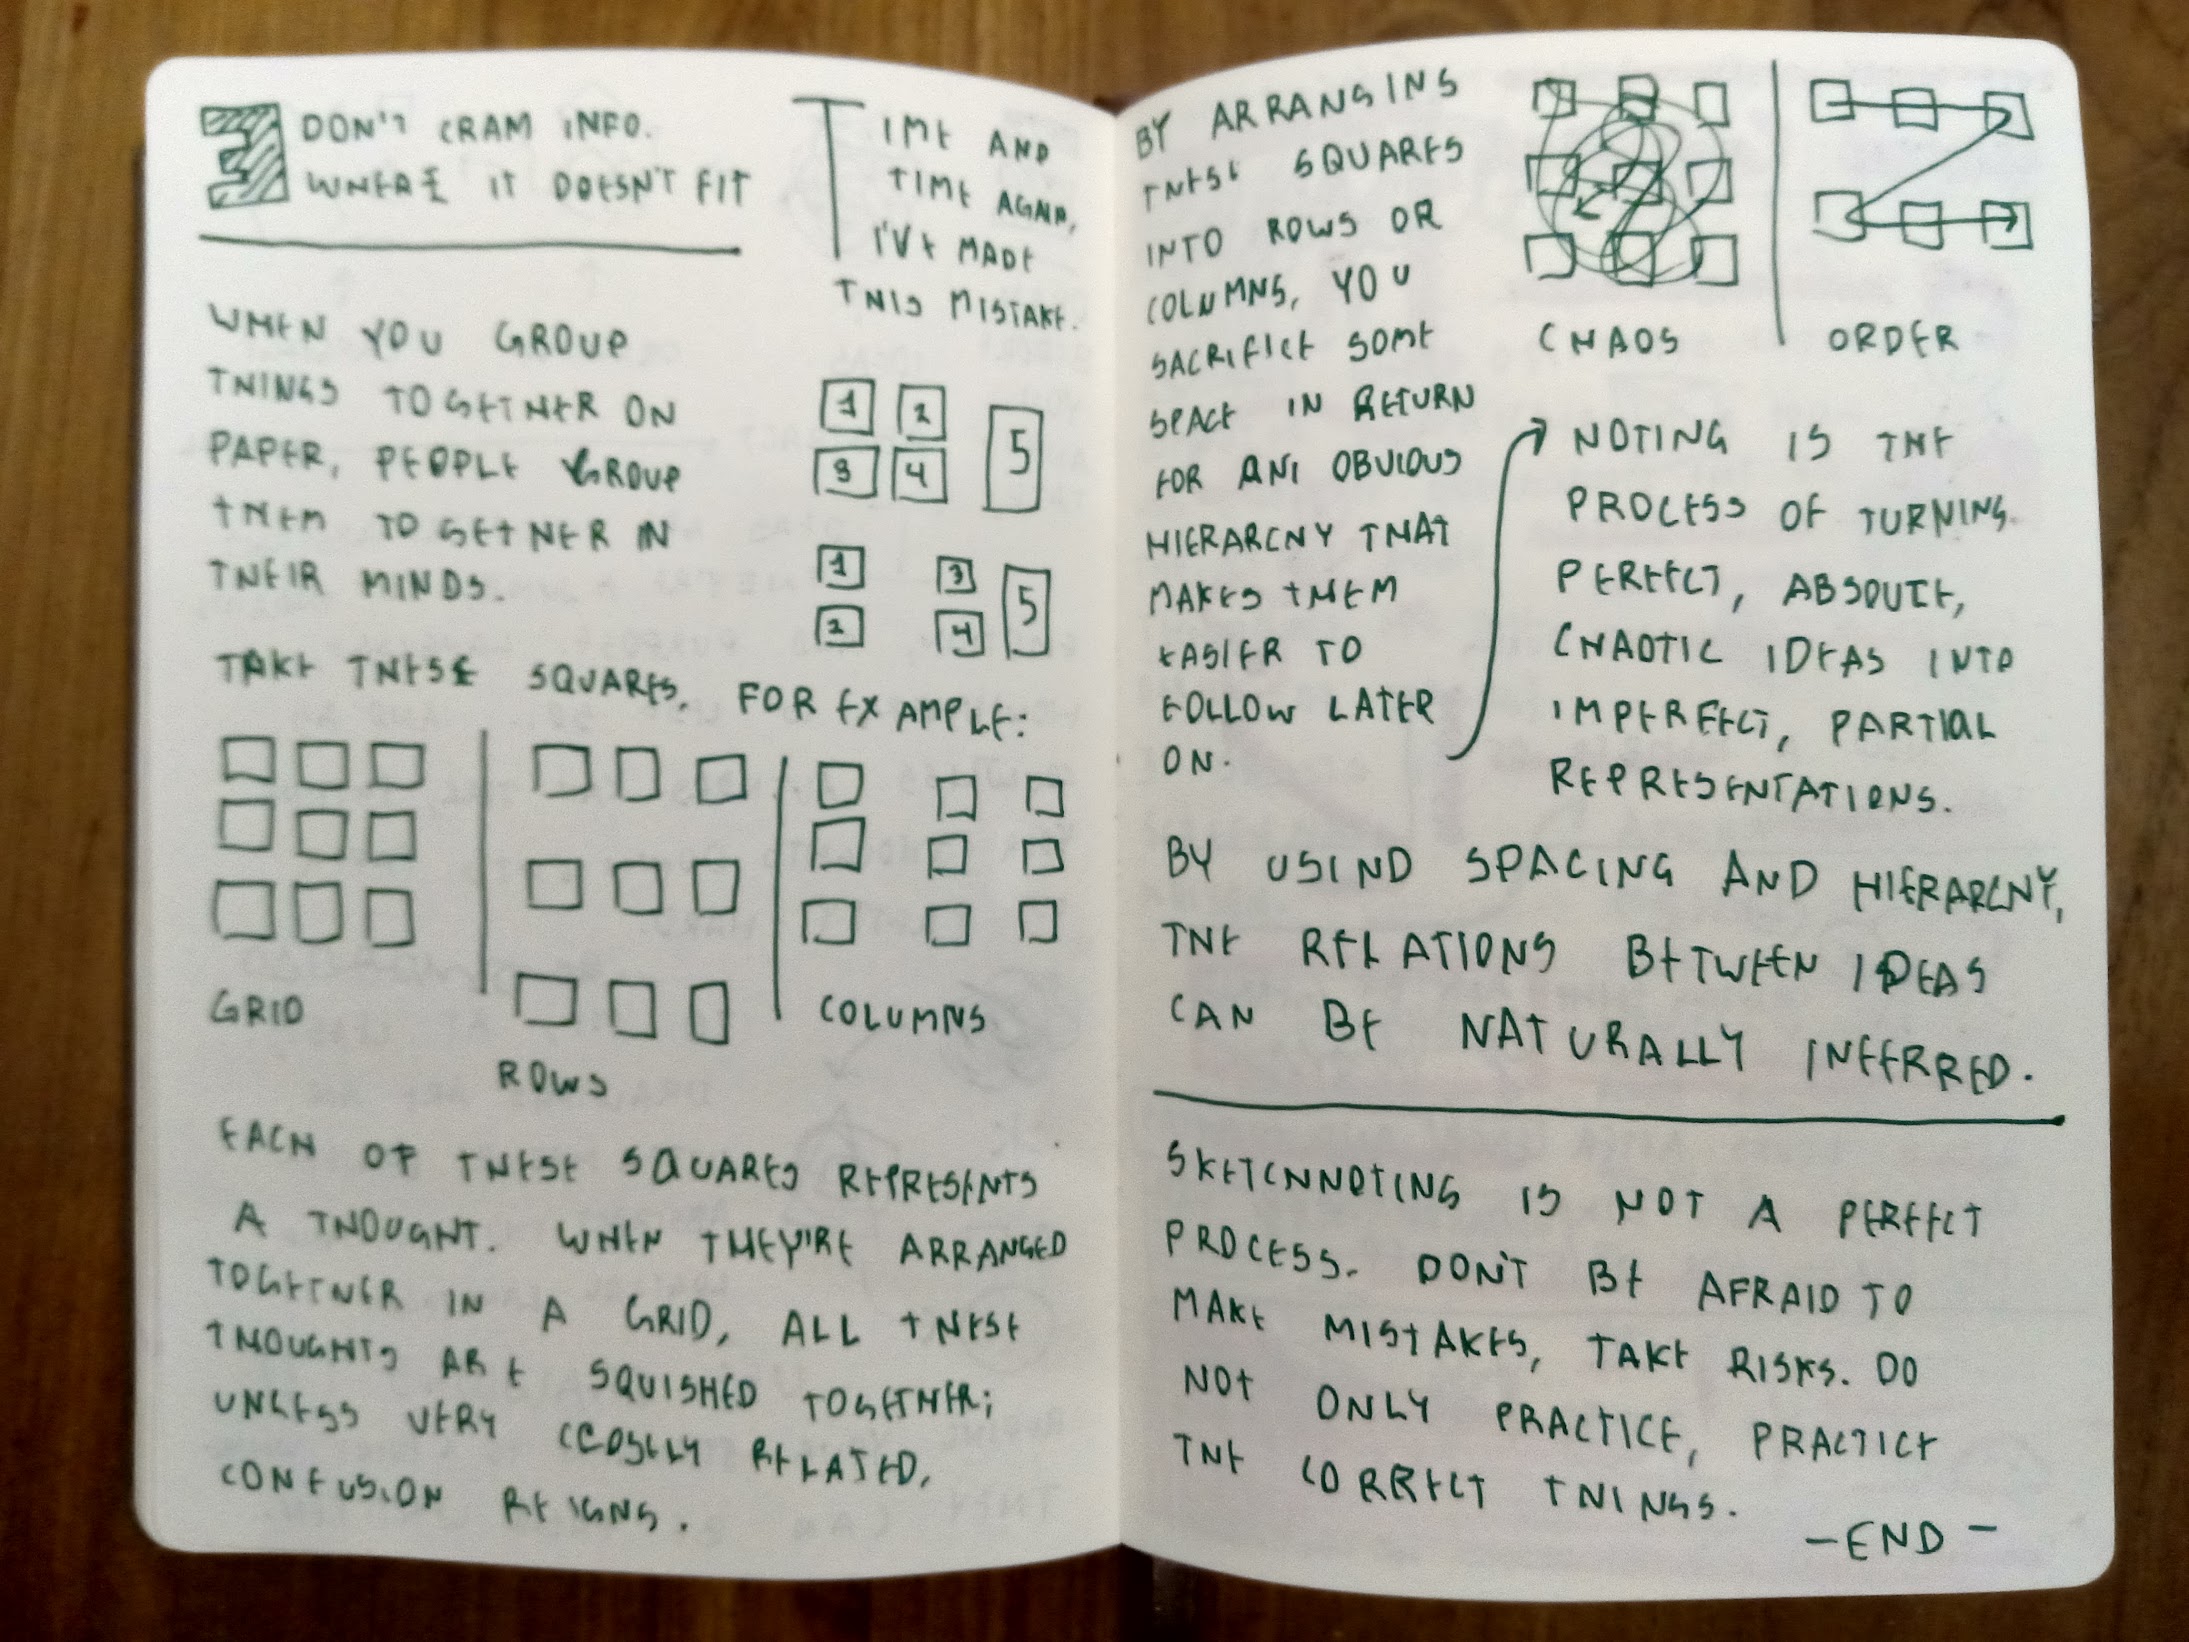 3
DON'T CRAM INFO.
WHERE IT DOESN'T FIT
TIME AND
TIME AGAIN,
I'VE MADE
THIS MISTAKE.
WHEN YOU GROUP
THINGS TOGETHER ON
PAPER, PEOPLE GROUP
THEM TOGETHER IN
THEIR MINDS.
1 2
3 4 5
1 3
2 4 5
TAKE THESE SQUARES, FOR EXAMPLE:
GRID
ROWS
COLUMNS
EACH OF THESE SQUARES REPRESENTS
A THOUGHT. WHEN THEY'RE ARRANGED
TOGETHER IN A GRID, ALL THESE
THOUGHTS ARE SQUISHED TOGETHER;
UNLESS VERY CLOSELY RELATED,
CONFUSION REIGNS.
BY ARRANGING
THESE SQUARES
INTO ROWS OR
COLUMNS, YOU
SACRIFICE SOME
SPACE IN RETURN
FOR AN OBVIOUS
HIERARCHY THAT
MAKES THEM
EASIER TO
FOLLOW LATER
ON.
CHAOS
ORDER
NOTING IS THE
PROCESS OF TURNING
PERFECT, ABSOUTE,
CHAOTIC IDEAS INTO
IMPERFECT, PARTIAL
REPRESENTATIONS.
BY USIND SPACING AND HIERARCHY,
THE RELATIONS BETWEEN IDEAS
CAN BE NATURALLY INFERRED.
SKETCHNOTING IS NOT A PERFECT
PROCESS. DON'T BE AFRAID TO
MAKE MISTAKES, TAKE RISKS. DO
NOT ONLY PRACTICE, PRACTICE
THE CORRECT THINGS.
-END-